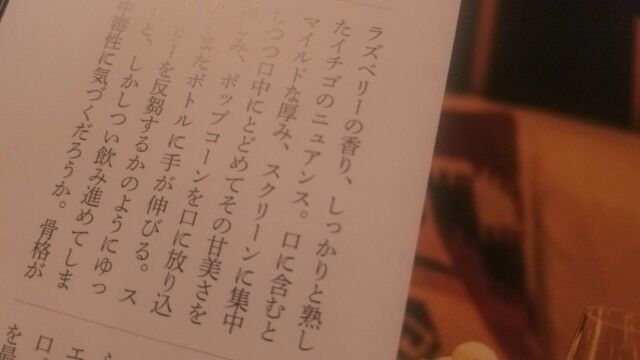 ラズベリーの香り、しっかりと熟し
たイチゴのニュアンス。口に含むと
マイルドな厚み、スクリーンに集中
しつつ口中にとどめてその甘美さを
しみ、ポップコーンを口に放り込
またボトルに手が伸びる。ス
リーを反芻するかのようにゆっ
と、しかしつい飲み進めてしま
中毒性に気づくだろうか。骨格が
エ
を最